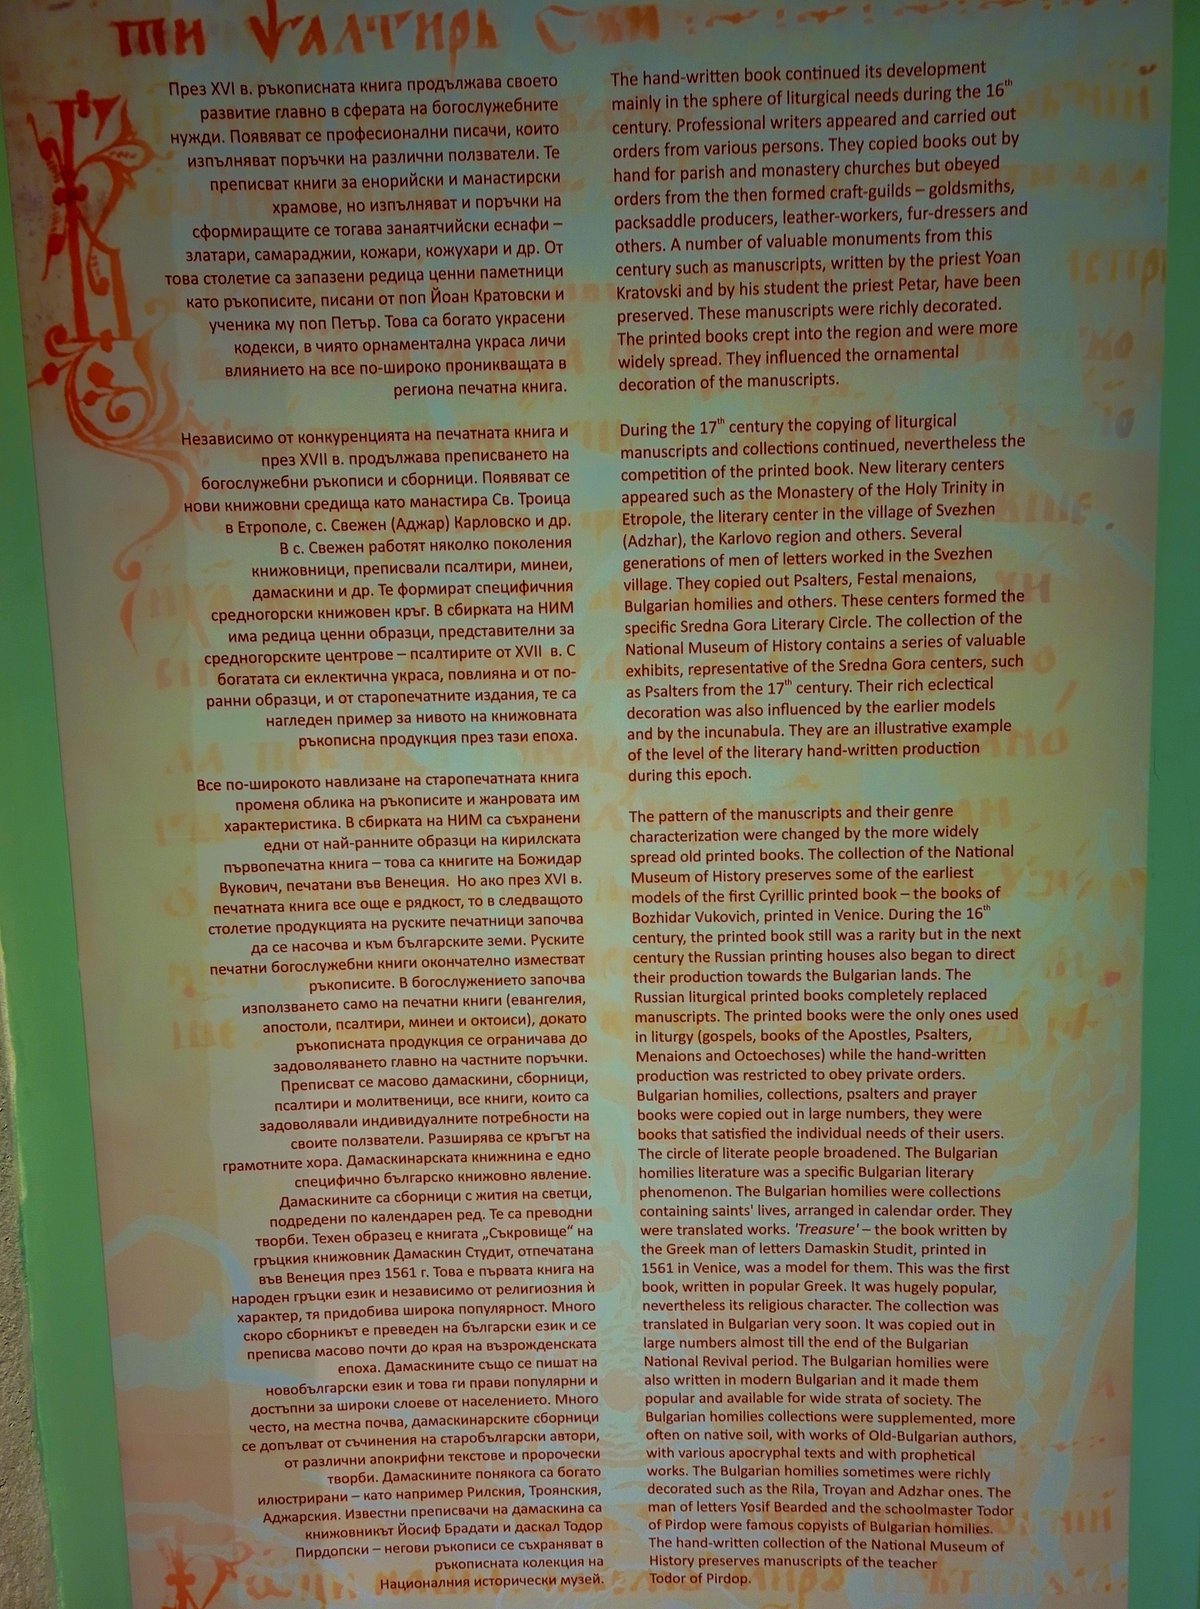 ти Ѱалтирь
През XVI в. ръкописната книга продължава своето
развитие главно в сферата на богослужебните
нужди. Появяват се професионални писачи, които
изпълняват поръчки на различни ползватели. Те
преписват книги за енорийски и манастирски
храмове, но изпълняват и поръчки на
сформиращите се тогава занаятчийски еснафи –
златари, самараджии, кожари, кожухари и др. От
това столетие са запазени редица ценни паметници
като ръкописите, писани от поп Йоан Кратовски и
ученика му поп Петър. Това са богато украсени
кодекси, в чиято орнаментална украса личи
влиянието на все по-широко проникващата в
региона печатна книга.
Независимо от конкуренцията на печатната книга и
през XVII в. продължава преписването на
богослужебни ръкописи и сборници. Появяват се
нови книжовни средища като манастира Св. Троица
в Етрополе, с. Свежен (Аджар) Карловско и др.
В с. Свежен работят няколко поколения
книжовници, преписвали псалтири, минеи,
дамаскини и др. Те формират специфичния
средногорски книжовен кръг. В сбирката на НИМ
има редица ценни образци, представителни за
средногорските центрове – псалтирите от XVII в. С
богатата си еклектична украса, повлияна и от по-
ранни образци, и от старопечатните издания, те са
нагледен пример за нивото на книжовната
ръкописна продукция през тази епоха.
Все по-широкото навлизане на старопечатната книга
променя облика на ръкописите и жанровата им
характеристика. В сбирката на НИМ са съхранени
едни от най-ранните образци на кирилската
първопечатна книга – това са книгите на Божидар
Вукович, печатани във Венеция. Но ако през XVI в.
печатната книга все още е рядкост, то в следващото
столетие продукцията на руските печатници започва
да се насочва и към българските земи. Руските
печатни богослужебни книги окончателно изместват
ръкописите. В богослужението започва
използването само на печатни книги (евангелия,
апостоли, псалтири, минеи и октоиси), докато
ръкописната продукция се ограничава до
задоволяването главно на частните поръчки.
Преписват се масово дамаскини, сборници,
псалтири и молитвеници, все книги, които са
задоволявали индивидуалните потребности на
своите ползватели. Разширява се кръгът на
грамотните хора. Дамаскинарската книжнина е едно
специфично българско книжовно явление.
Дамаскините са сборници с жития на светци,
подредени по календарен ред. Те са преводни
творби. Техен образец е книгата „Съкровище“ на
гръцкия книжовник Дамаскин Студит, отпечатана
във Венеция през 1561 г. Това е първата книга на
народен гръцки език и независимо от религиозния ѝ
характер, тя придобива широка популярност. Много
скоро сборникът е преведен на български език и се
преписва масово почти до края на възрожденската
епоха. Дамаскините също се пишат на
новобългарски език и това ги прави популярни и
достъпни за широки слоеве от населението. Много
често, на местна почва, дамаскинарските сборници
се допълват от съчинения на старобългарски автори,
от различни апокрифни текстове и пророчески
творби. Дамаскините понякога са богато
илюстрирани – като например Рилския, Троянския,
Аджарския. Известни преписвачи на дамаскина са
книжовникът Йосиф Брадати и даскал Тодор
Пирдопски – негови ръкописи се съхраняват в
ръкописната колекция на
Националния исторически музей.
The hand-written book continued its development
mainly in the sphere of liturgical needs during the 16th
century. Professional writers appeared and carried out
orders from various persons. They copied books out by
hand for parish and monastery churches but obeyed
orders from the then formed craft-guilds – goldsmiths,
packsaddle producers, leather-workers, fur-dressers and
others. A number of valuable monuments from this
century such as manuscripts, written by the priest Yoan
Kratovski and by his student the priest Petar, have been
preserved. These manuscripts were richly decorated.
The printed books crept into the region and were more
widely spread. They influenced the ornamental
decoration of the manuscripts.
During the 17th century the copying of liturgical
manuscripts and collections continued, nevertheless the
competition of the printed book. New literary centers
appeared such as the Monastery of the Holy Trinity in
Etropole, the literary center in the village of Svezhen
(Adzhar), the Karlovo region and others. Several
generations of men of letters worked in the Svezhen
village. They copied out Psalters, Festal menaions,
Bulgarian homilies and others. These centers formed the
specific Sredna Gora Literary Circle. The collection of the
National Museum of History contains a series of valuable
exhibits, representative of the Sredna Gora centers, such
as Psalters from the 17th century. Their rich eclectical
decoration was also influenced by the earlier models
and by the incunabula. They are an illustrative example
of the level of the literary hand-written production
during this epoch.
The pattern of the manuscripts and their genre
characterization were changed by the more widely
spread old printed books. The collection of the National
Museum of History preserves some of the earliest
models of the first Cyrillic printed book – the books of
Bozhidar Vukovich, printed in Venice. During the 16th
century, the printed book still was a rarity but in the next
century the Russian printing houses also began to direct
their production towards the Bulgarian lands. The
Russian liturgical printed books completely replaced
manuscripts. The printed books were the only ones used
in liturgy (gospels, books of the Apostles, Psalters,
Menaions and Octoechoses) while the hand-written
production was restricted to obey private orders.
Bulgarian homilies, collections, psalters and prayer
books were copied out in large numbers, they were
books that satisfied the individual needs of their users.
The circle of literate people broadened. The Bulgarian
homilies literature was a specific Bulgarian literary
phenomenon. The Bulgarian homilies were collections
containing saints' lives, arranged in calendar order. They
were translated works. 'Treasure' – the book written by
the Greek man of letters Damaskin Studit, printed in
1561 in Venice, was a model for them. This was the first
book, written in popular Greek. It was hugely popular,
nevertheless its religious character. The collection was
translated in Bulgarian very soon. It was copied out in
large numbers almost till the end of the Bulgarian
National Revival period. The Bulgarian homilies were
also written in modern Bulgarian and it made them
popular and available for wide strata of society. The
Bulgarian homilies collections were supplemented, more
often on native soil, with works of Old-Bulgarian authors,
with various apocryphal texts and with prophetical
works. The Bulgarian homilies sometimes were richly
decorated such as the Rila, Troyan and Adzhar ones. The
man of letters Yosif Bearded and the schoolmaster Todor
of Pirdop were famous copyists of Bulgarian homilies.
The hand-written collection of the National Museum of
History preserves manuscripts of the teacher
Todor of Pirdop.